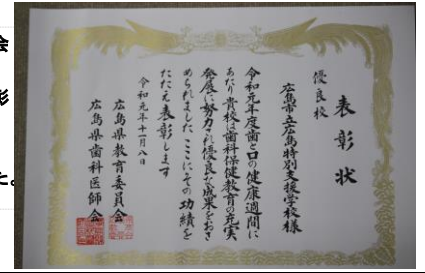 表彰状
優良校
広島市立広島特別支援学校様
令和元年度歯と口の健康週間に
あたり貴校は歯科保健教育の充実
発展に努力され優良な成果をおさ
められました ここにその功績を
たたえ表彰します
令和元年十一月八日
広島県教育委員会
広島県歯科医師会
会
彰
た。